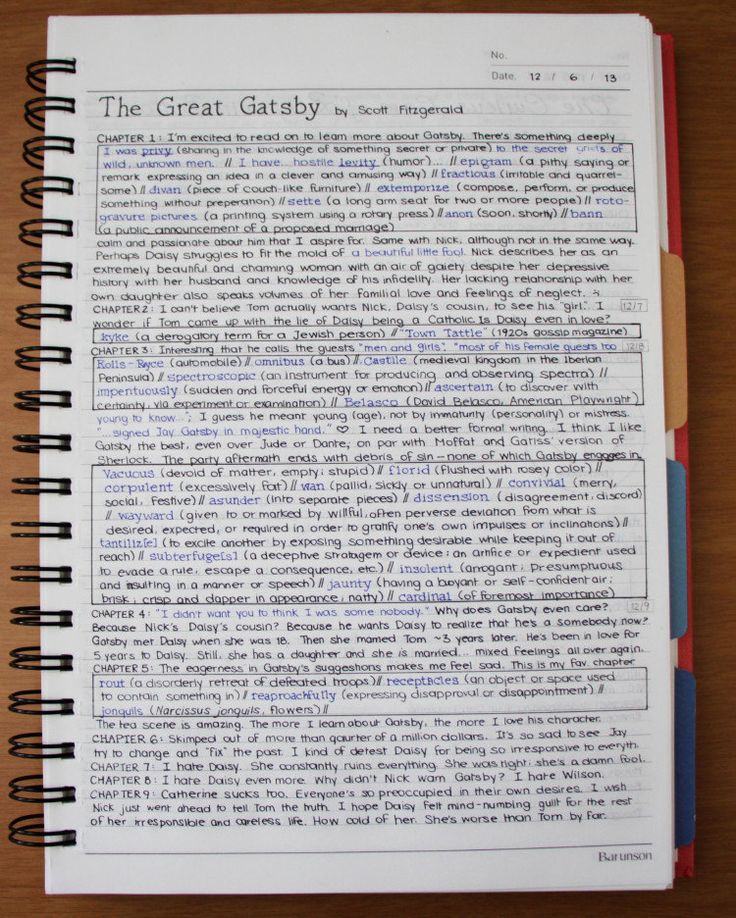 No.
Date. 12 / 6 / 13
The Great Gatsby by Scott Fitzgerald
CHAPTER 1: I'm excited to read on to learn more about Gatsby. There's something deeply
I was privy (sharing in the knowledge of something secret or private) to the secret griefs of
wild, unknown men. // I have... hostile levity (humor)... // epigram (a pithy saying or
remark expressing an idea in a clever and amusing way) // fractious (irritable and quarrel-
some) // divan (piece of couch-like furniture) // extemporize (compose, perform, or produce
something without preperation) // sette (a long arm seat for two or more people) // roto-
gravure pictures (a printing system using a rotary press) // anon (soon, shortly) // bann
(a public announcement of a proposed marriage)
calm and passionate about him that I aspire for. Same with Nick, although not in the same way.
Perhaps Daisy struggles to fit the mold of a beautiful little fool. Nick describes her as an
extremely beautiful and charming woman with an air of gaiety despite her depressive
history with her husband and knowledge of his infidelity. Her lacking relationship with her
own daughter also speaks volumes of her familial love and feelings of neglect. :(
CHAPTER 2: I can't believe Tom actually wants Nick, Daisy's cousin, to see his "girl". I 12/7
wonder if Tom came up with the lie of Daisy being a Catholic. Is Daisy even in love?
kyke (a derogatory term for a Jewish person) // "Town Tattle" (1920s gossip magazine)
CHAPTER 3: Interesting that he calls the guests "men and girls". "most of his female guests too 12/8
Rolls-Royce (automobile) // omnibus (a bus) // Castile (medieval kingdom in the Iberian
Peninsula) // spectroscopic (an instrument for producing and observing spectra) //
impentuously (sudden and forceful energy or emotion) // ascertain (to discover with
certainty, via experiment or examination) // Belasco (David Belasco, American Playwright)
young to know..."; I guess he meant young (age), not by immaturity (personality) or mistress.
"...signed Jay Gatsby in majestic hand." ♡ I need a better formal writing. I think I like
Gatsby the best, even over Jude or Dante; on par with Moffat and Gatiss' version of
Sherlock. The party aftermath ends with debris of sin – none of which Gatsby engages in.
vacuous (devoid of matter, empty; stupid) // florid (flushed with rosey color) //
corpulent (excessively fat) // wan (pallid, sickly or unnatural) // convivial (merry,
social, festive) // asunder (into separate pieces) // dissension (disagreement, discord)
// wayward (given to or marked by willful, often perverse deviation from what is
desired, expected, or required in order to gratify one's own impulses or inclinations) //
tantiliz[e] (to excite another by exposing something desirable while keeping it out of
reach) // subterfuge[s] (a deceptive stratagem or device: an artifice or expedient used
to evade a rule, escape a consequence, etc.) // insolent (arrogant; presumptuous
and insulting in a manner or speech) // jaunty (having a buoyant or self-confident air;
brisk; crisp and dapper in appearance; natty) // cardinal (of foremost importance)
CHAPTER 4: "I didn't want you to think I was some nobody." Why does Gatsby even care? 12/9
Because Nick's Daisy's cousin? Because he wants Daisy to realize that he's a somebody now?
Gatsby met Daisy when she was 18. Then she married Tom ~3 years later. He's been in love for
5 years to Daisy. Still, she has a daughter and she is married... mixed feelings all over again.
CHAPTER 5: The eagerness in Gatsby's suggestions makes me feel sad. This is my fav. chapter
rout (a disorderly retreat of defeated troops) // receptacles (an object or space used
to contain something in) // reaproachfully (expressing disapproval or disappointment) //
jonquils (Narcissus jonquils, flowers) //
The tea scene is amazing. The more I learn about Gatsby, the more I love his character.
CHAPTER 6: Skimped out of more than qaurter of a million dollars. It's so sad to see Jay
try to change and "fix" the past. I kind of detest Daisy for being so irresponsive to everyth.
CHAPTER 7: I hate Daisy. She constantly ruins everything. She was right; she's a damn fool.
CHAPTER 8: I hate Daisy even more. Why didn't Nick warn Gatsby? I hate Wilson.
CHAPTER 9: Catherine sucks too. Everyone's so preoccupied in their own desires. I wish
Nick just went ahead to tell Tom the truth. I hope Daisy felt mind-numbing guilt for the rest
of her irresponsible and careless life. How cold of her. She's worse than Tom by far.
Barunson